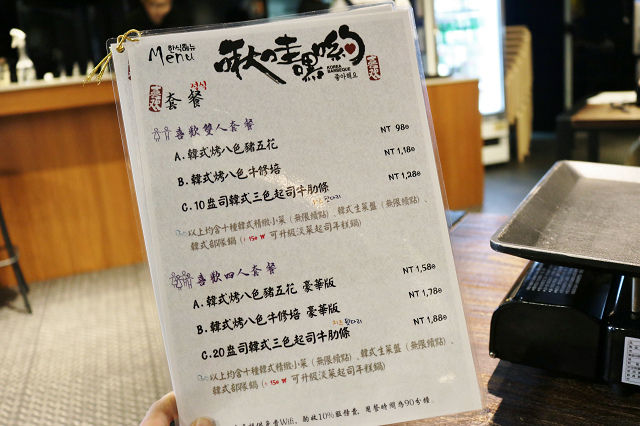 한식메뉴
Menu
啾哇嘿喲
KOREA
BARBEQUE
좋아해요
套餐 석식
喜歡雙人套餐
A. 韓式烤八色豬五花 NT 980
B. 韓式烤八色牛修培 NT 1,180
C. 10盎司韓式三色起司牛肋條 NT 1,280
以上均含十種韓式精緻小菜(無限續點)、韓式生菜盤(無限續點)、
韓式部隊鍋(+150 ₩ 可升級淡菜起司年糕鍋)
喜歡四人套餐
A. 韓式烤八色豬五花 豪華版 NT 1,580
B. 韓式烤八色牛修培 豪華版 NT 1,780
C. 20盎司韓式三色起司牛肋條 NT 1,880
以上均含十種韓式精緻小菜(無限續點)、韓式生菜盤(無限續點)、
韓式部隊鍋(+150 ₩ 可升級淡菜起司年糕鍋)
提供免費Wifi, 酌收10%服務費, 用餐時間為90分鐘.